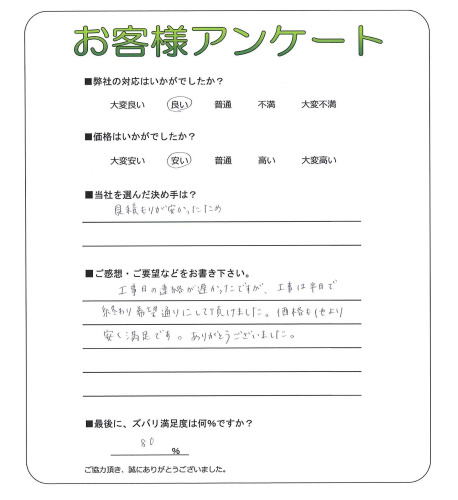 お客様アンケート
■弊社の対応はいかがでしたか？
大変良い　良い　普通　不満　大変不満
■価格はいかがでしたか？
大変安い　安い　普通　高い　大変高い
■当社を選んだ決め手は？
見積もりが安かったため
■ご感想・ご要望などをお書き下さい。
工事日の連絡が遅かったですが、工事は半日で
終わり希望通りにして頂けました。価格も他より
安く満足です。ありがとうございました。
■最後に、ズバリ満足度は何％ですか？
80 ％
ご協力頂き、誠にありがとうございました。